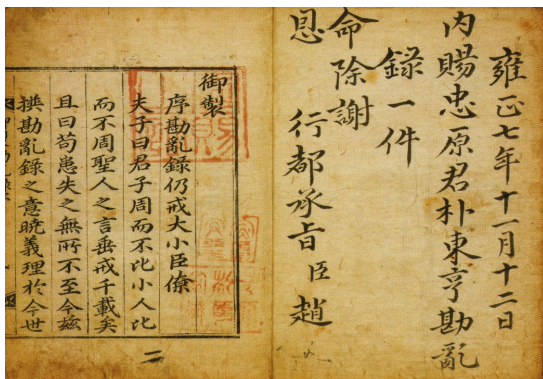 雍正七年十一月十二日
內賜忠原君朴東亨勘亂
錄一件
命除謝
恩
行都承旨臣趙
御製
序勘亂錄仍戒大小臣僚
夫子曰君子周而不比小人比
而不周聖人之言垂戒千載矣
且曰苟患失之無所不至今玆
撰勘亂錄之意曉義理於今世
二